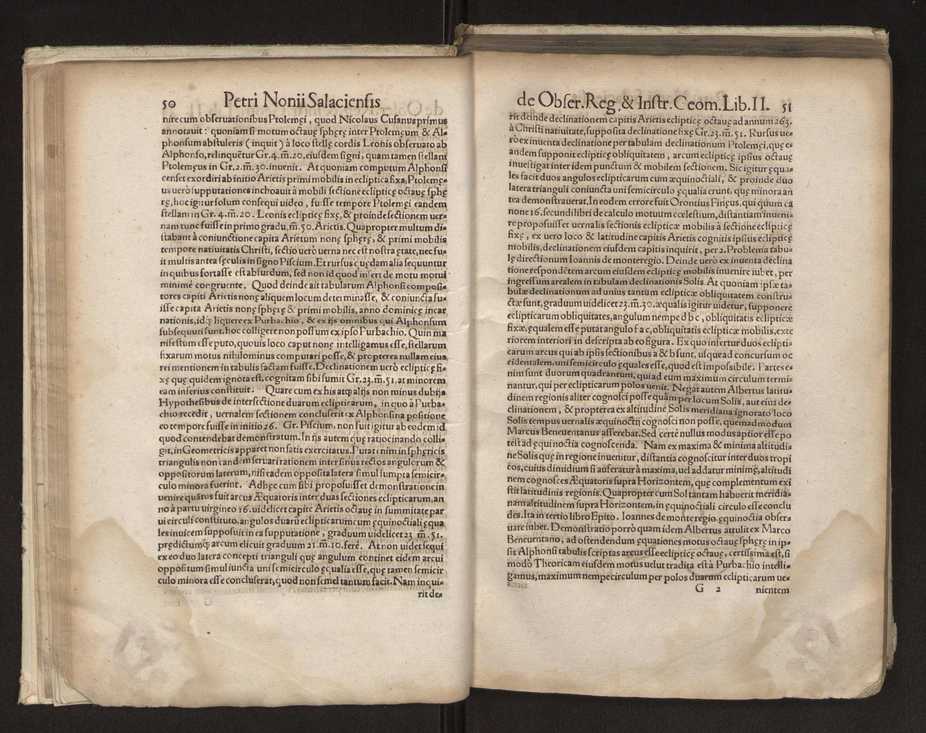 50 Petri Nonii Salaciensis
nire cum obseruationibus Ptolemęi, quod Nicolaus Cusanus primus
annotauit: quoniam si motum octauę sphęrę inter Ptolemęum & Al-
phonsum abstuleris (inquit) à loco stellę cordis Leonis obseruato ab
Alphonso, relinquetur Gr. 4. m̃. 20. eiusdem signi, quam tamen stellam
Ptolemęus in Gr. 2. m̃. 30. inuenit. At quoniam computum Alphonsi
censet exordiri ab initio Arietis primi mobilis in ecliptica fixa, Ptolemę-
us verò supputationes inchoauit à mobili sectione eclipticę octauę sphę
rę, hoc igitur solum consequi video, fuisse tempore Ptolemęi eandem
stellam in Gr. 4. m̃. 20. Leonis eclipticę fixę, & proinde sectionem ver-
nam tunc fuisse in primo gradu, m̃. 50. Arietis. Quapropter multum di-
stabant à coniunctione capita Arietum nonę sphęrę, & primi mobilis
tempore natiuitatis Christi, sectio verò verna nec est nostra ętate, nec fu-
it multis antea sęculis in signo Piscium. Et rursus quędam alia sequuntur
in quibus fortasse est absurdum, sed non id quod infert de motu motui
minimè congruente. Quod deinde ait tabularum Alphonsi composi-
tores capiti Arietis nonę aliquem locum determinasse, & coniuncta fu-
isse capita Arietis nonę sphęrę & primi mobilis, anno dominicę incar
nationis, idq́; liquere ex Purbachio, & ex ijs omnibus qui Alphonsum
subsequuti sunt, hoc colligere non possum ex ipso Purbachio. Quin ma
nifestum esse puto, quouis loco caput nonę intelligamus esse, stellarum
fixarum motus nihilominus computari posse, & propterea nullam eius
rei mentionem in tabulis factam fuisse. Declinationem verò eclipticę fi-
xę quę quidem ignota est, cognitam sibi sumit Gr. 23. m̃. 51. at minorem
eam inferius constituit. Quare cum ex his atq; alijs non minus dubijs
Hypothesibus de intersectione duarum eclipticarum, in quo à Purba-
chio recedit, vernalem sectionem concluserit ex Alphonsina positione
eo tempore fuisse in initio 26. Gr. Piscium, non fuit igitur ab eodem id
quod contendebat demonstratum. In ijs autem quę ratiocinando colli-
git, in Geometricis apparet non satis exercitatus. Putat enim in sphęricis
triangulis non eandem seruari rationem inter sinus rectos angulorum &
oppositorum laterum, nisi tandem opposita latera simul sumpta semicir-
culo minora fuerint. Adhęc cum sibi proposuisset demonstratione in-
uenire quātus fuit arcus Æquatoris inter duas sectiones eclipticarum, an
no à partu virgineo 16. uidelicet capite Arietis octauę in summitate par
ui circuli constituto, angulos duarū eclipticarum cum ęquinoctiali ęqua
les inuicem supposuit in ea supputatione, graduum uidelicet 23. m̃. 51.
prędictumq́; arcum elicuit graduum 21. m̃. 10. ferè. At non uidet sequi
ex eo duo latera concepti trianguli quę angulum continet eidem arcui
oppositum simul iuncta uni semicirculo ęqualia esse, quę tamen semicir
culo minora esse concluserat, quod non semel tantum facit. Nam inqui-
rit de-
de Obser. Reg. & Instr. Geom. Lib. II. 51
rit deinde declinationem capitis Arietis eclipticę octauę ad annum 263.
à Christi natiuitate, supposita declinatione fixę Gr. 23. m̃. 51. Rursus ve-
rò ex inuenta declinatione per tabulam declinationum Ptolemęi, quę e-
andem supponit eclipticę obliquitatem, arcum eclipticę ipsius octauę
inuestigat inter idem punctum & mobilem sectionem. Sic igitur ęqua-
les facit duos angulos eclipticarum cum ęquinoctiali, & proinde duo
latera trianguli coniuncta uni semicirculo ęqualia erunt, quę minora an
tea demonstrauerat. In eodem errore fuit Orontius Fineus, qui quum ca
none 16. secundi libri de calculo motuum cœlestium, distantiam inueni
re proposuisset vernalis sectionis eclipticę mobilis à sectione eclipticę
fixę, ex uero loco & latitudine capitis Arietis cognitis ipsius eclipticę
mobilis, declinationem eiusdem capitis inquirit, per 2. Problema tabu-
lę directionum Ioannis de monteregio. Deinde uerò ex inuenta declina
tione respondētem arcum eiusdem eclipticę mobilis inuenire iubet, per
ingressum arealem in tabulam declinationis Solis. At quoniam ipsæ ta-
bulæ declinationum ad unius tantum eclipticæ obliquitatem constru-
ctæ sunt, graduum uidelicet 23. m̃. 30. æqualis igitur uidetur, supponere
eclipticarum obliquitates, angulum nempe d b c, obliquitatis eclipticæ
fixæ, equalem esse putat angulo f a c, obliquitatis eclipticæ mobilis, exte
riorem interiori in descripta ab eo figura. Ex quo infertur duos eclipti-
carum arcus qui ab ipsis sectionibus a & b sunt, usque ad concursum oc
cidentalem, uni semicirculo equales esse, quod est impossibile. Partes e-
nim sunt duorum quadrantum, qui ad eum maximum circulum termi-
nantur, qui per eclipticarum polos uenit. Negat autem Albertus latitu-
dinem regionis aliter cognosci posse quàm per locum Solis, aut eius de-
clinationem, & propterea ex altitudine Solis meridiana ignorato loco
Solis tempus uernalis æquinoctij cognosci non posse, quemadmodum
Marcus Beneuentanus asserebat. Sed certè nullus modus aptior esse po
test ad ęquinoctia cognoscenda. Nam ex maxima & minima altitudi
ne Solis quę in regione inuenitur, distantia cognoscitur inter duos tropi
cos, cuius dimidium si auferatur à maxima, uel addatur minimę, altitudi
nem cognosces Æquatoris supra Horizontem, quę complementum exi
stit latitudinis regionis. Quapropter cum Sol tantam habuerit meridia-
nam altitudinem supra Horizontem, in ęquinoctiali circulo esse conclu
des. Ita in tertio libro Epito. Ioannes de monteregio ęquinoctia obser-
uare iubet. Demōstratio porrò quam idem Albertus attulit ex Marco
Beneuentano, ad ostendendum ęquationes motus octauę sphęrę in ip-
sis Alphonsi tabulis scriptas arcus esse eclipticę octauę, certissima est, si
modò Theoricam eiusdem motus uelut tradita est à Purbachio intelli-
gamus, maximum nempe circulum per polos duarum eclipticarum ue-
G 2 nientem